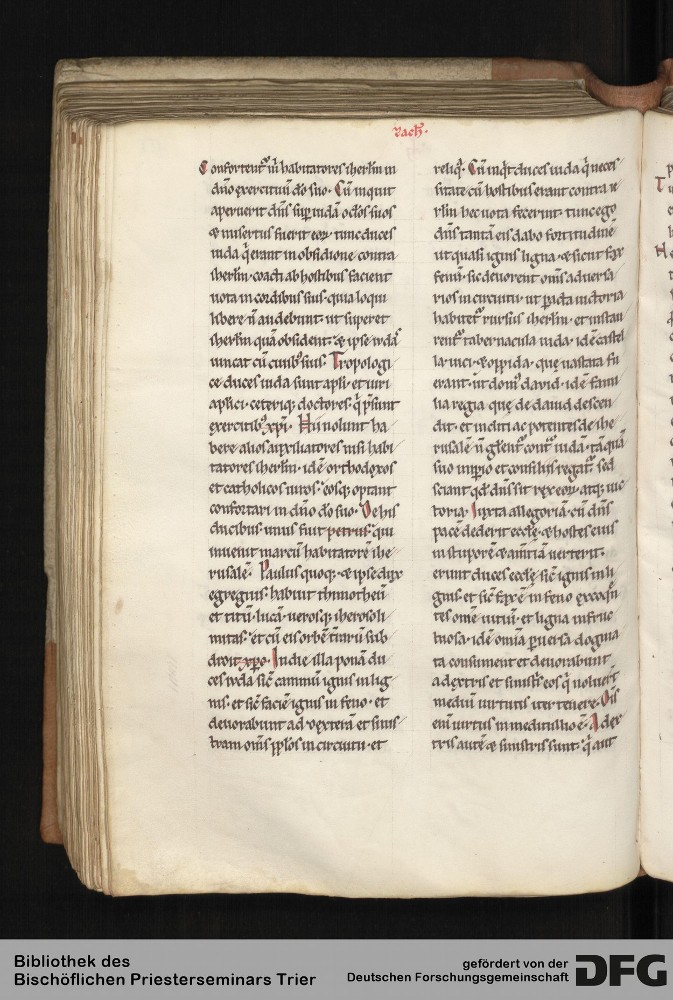 zach̄.
Confortent᷒ m̄ habitatores iherlm̄ in
dn̄o exercituū dō suo. Cū inquit
aperuerit dn̄s sup̄ iudā oc̄los suos
& misertus fuerit eoꝝ tunc duces
iuda q̇ erant in obsidione contra
iherlm̄. coacti ab hostibus facient
uota in cordibus suis. quia loqui
libere n̄ audebunt. ut superet
iherlm̄ quā obsident. & ipse iudā
uincat cū ciuib᷒ suis. Tropologi
ce duces iuda sunt apl̄i. et uiri
apl̄ici. ceteriq; doctores. q̇ p̄sunt
exercitib᷒ xp̄i. Hii nolunt ha
bere alios auxiliatores nisi habi
tatores iherlm̄. idē orthodoxos
et catholicos uiros. eosq; optant
confortari in dn̄o dō suo. De his
ducibus unus fuit petrus. qui
inuenit marcū habitatorē ihe
rusalē. Paulus quoq; & ipse dux
egregius. habuit thimotheū
et titū. lucā. uerosq; iherosoli
mitas. et cū eis orbē t̄rarū sub
didit xp̄o. In die illa ponā du
ces iuda sic̄ caminū ignis in lig
nis. et sic̄ faciē ignis in feno. et
deuorabunt ad dexterā et sinis
tram om̄s pp̄los in circuitu. et
reliq̇. Cū inq̇t duces iuda q̇ neces
sitate cū hostibus erant contra ie
rlm̄ hec uota fecerint. tunc ego
dn̄s tantā eis dabo fortitudinē
ut quasi ignis ligna. & sicut fax
fenū. sic deuorent om̄s aduersa
rios in circuitu. ut p̄acta uictoria
habitet᷒ rursus iherlm̄. et instau
rent᷒ tabernacula iuda. idē castel
la. uici. & oppida. que uastata fu
erant. ut dom᷒ dauid. idē fami
lia regia que de dauid descen
dit. et incliti ac potentes de ihe
rusalē n̄ glent᷒ cont᷒ iudā. tāquā
suo imp̄io et consiliis regat᷒. sed
sciant qd̄ dn̄s sit rex eoꝝ. atq; uic
toria. Iuxta allegoriā. cū dn̄s
pacē dederit eccl̄e. & hostes eius
in stuporē & am̄tiā uerterit.
erunt duces eccl̄e sic̄ ignis in li
gnis. et sic̄ fax ē in feno exurēn
tes omē uitiū. et ligna infruc
tuosa. idē om̄ia p̄uersa dogma
ta consument et deuorabunt
a dextris et sinistris eos q̇ noluer̄t
mediū uirtutis iter tenere. Om̄is
enī uirtus in meditullio ē. A dex
tris autē & sinistris sunt. q̇ aut
Bibliothek des
Bischöflichen Priesterseminars Trier
gefördert von der
Deutschen Forschungsgemeinschaft
DFG